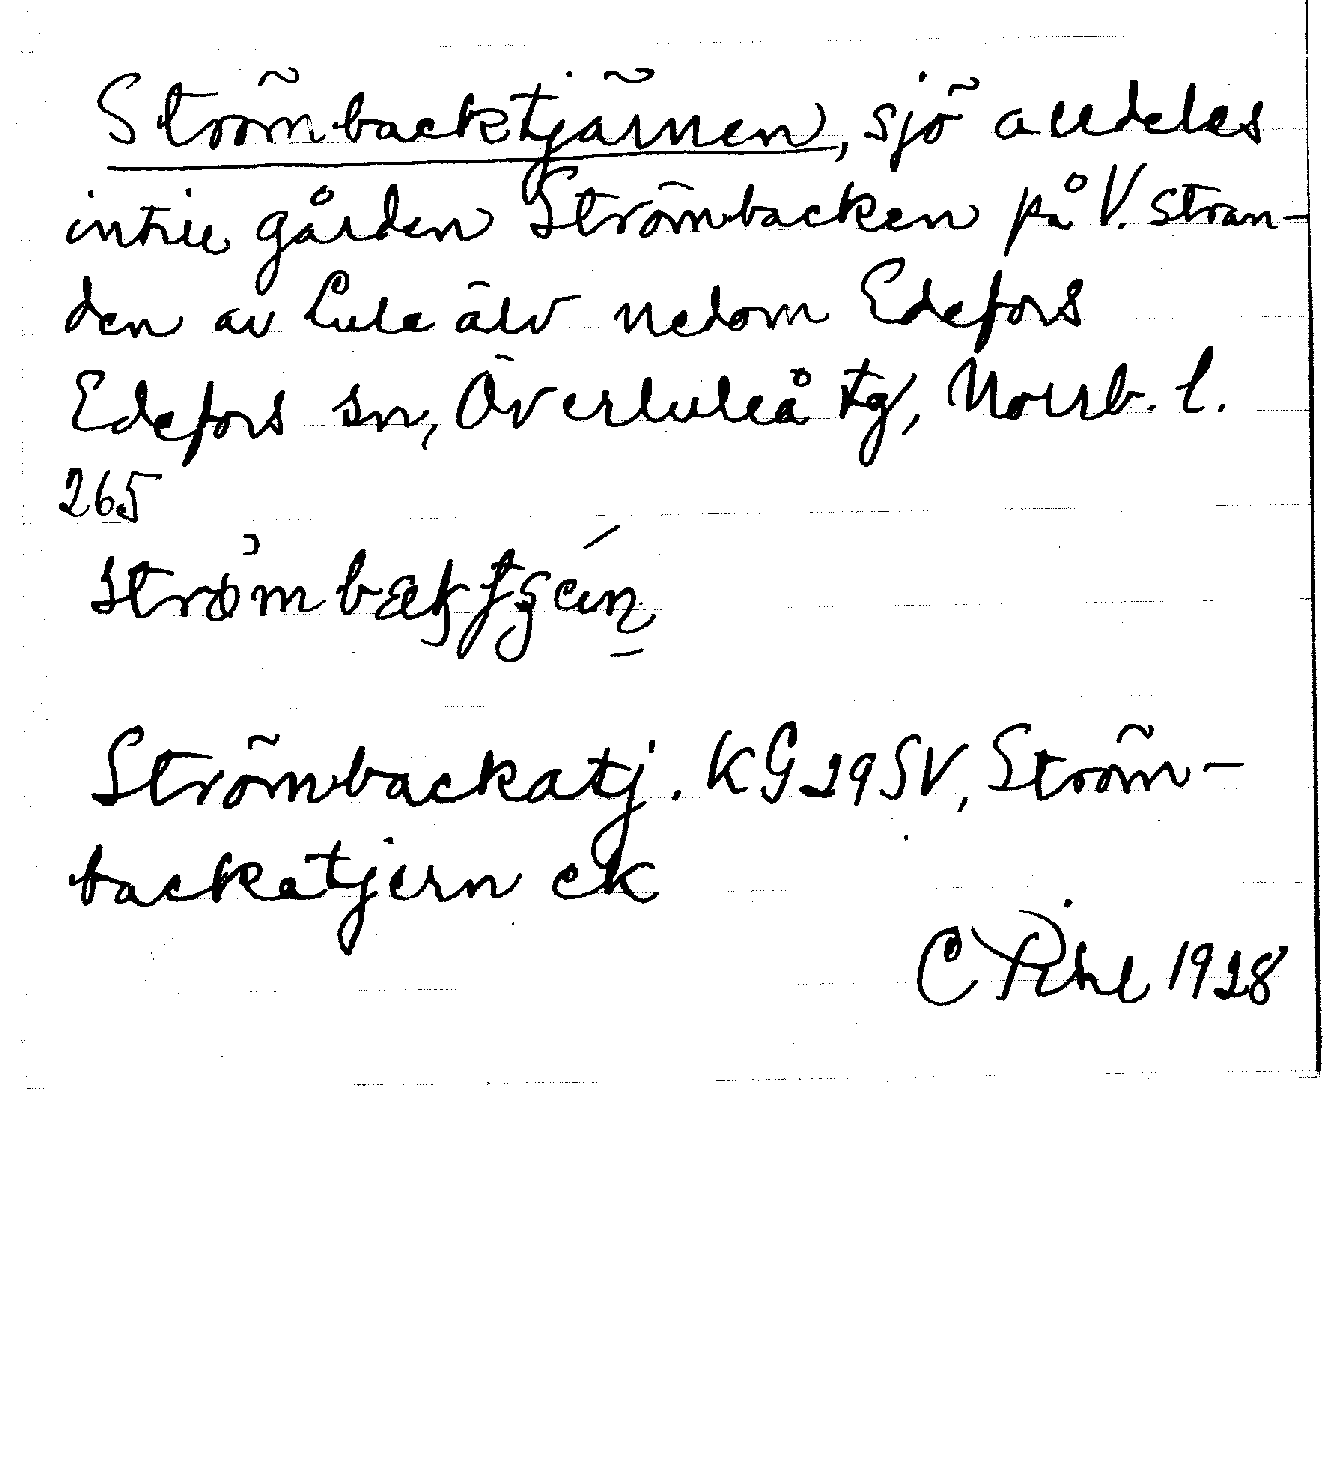 Strömbacktjärnen, sjö alldeles
intill gården Strömbacken på V. stran-
den av Lule älv nedom Edefors
Edefors sn, Överluleå tg, Norrb. l.
265
Strömbackatj. KG29SV, Ström-
backatjern ek
C Pihl 1928